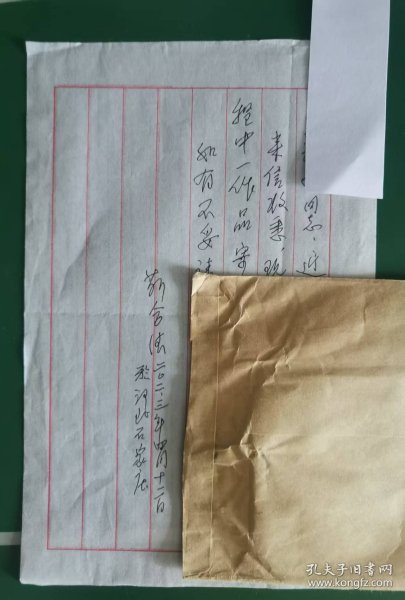 同志：近
来信敬悉，现
程中一作品寄
如有不妥请
二〇二三年四月十二日
于河北石家庄
孔夫子旧书网
www.kongfz.com